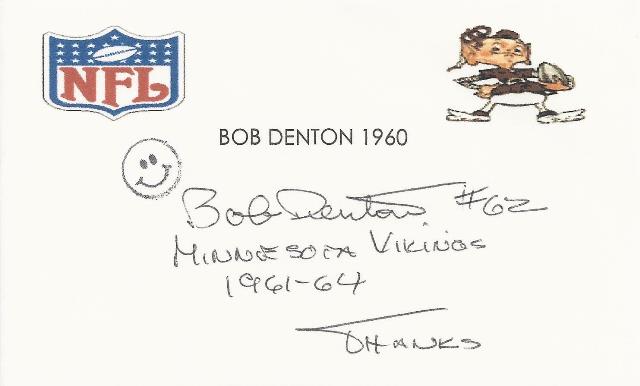 NFL
BOB DENTON 1960
Bob Denton #62
MINNESOTA VIKINGS
1961-64
THANKS